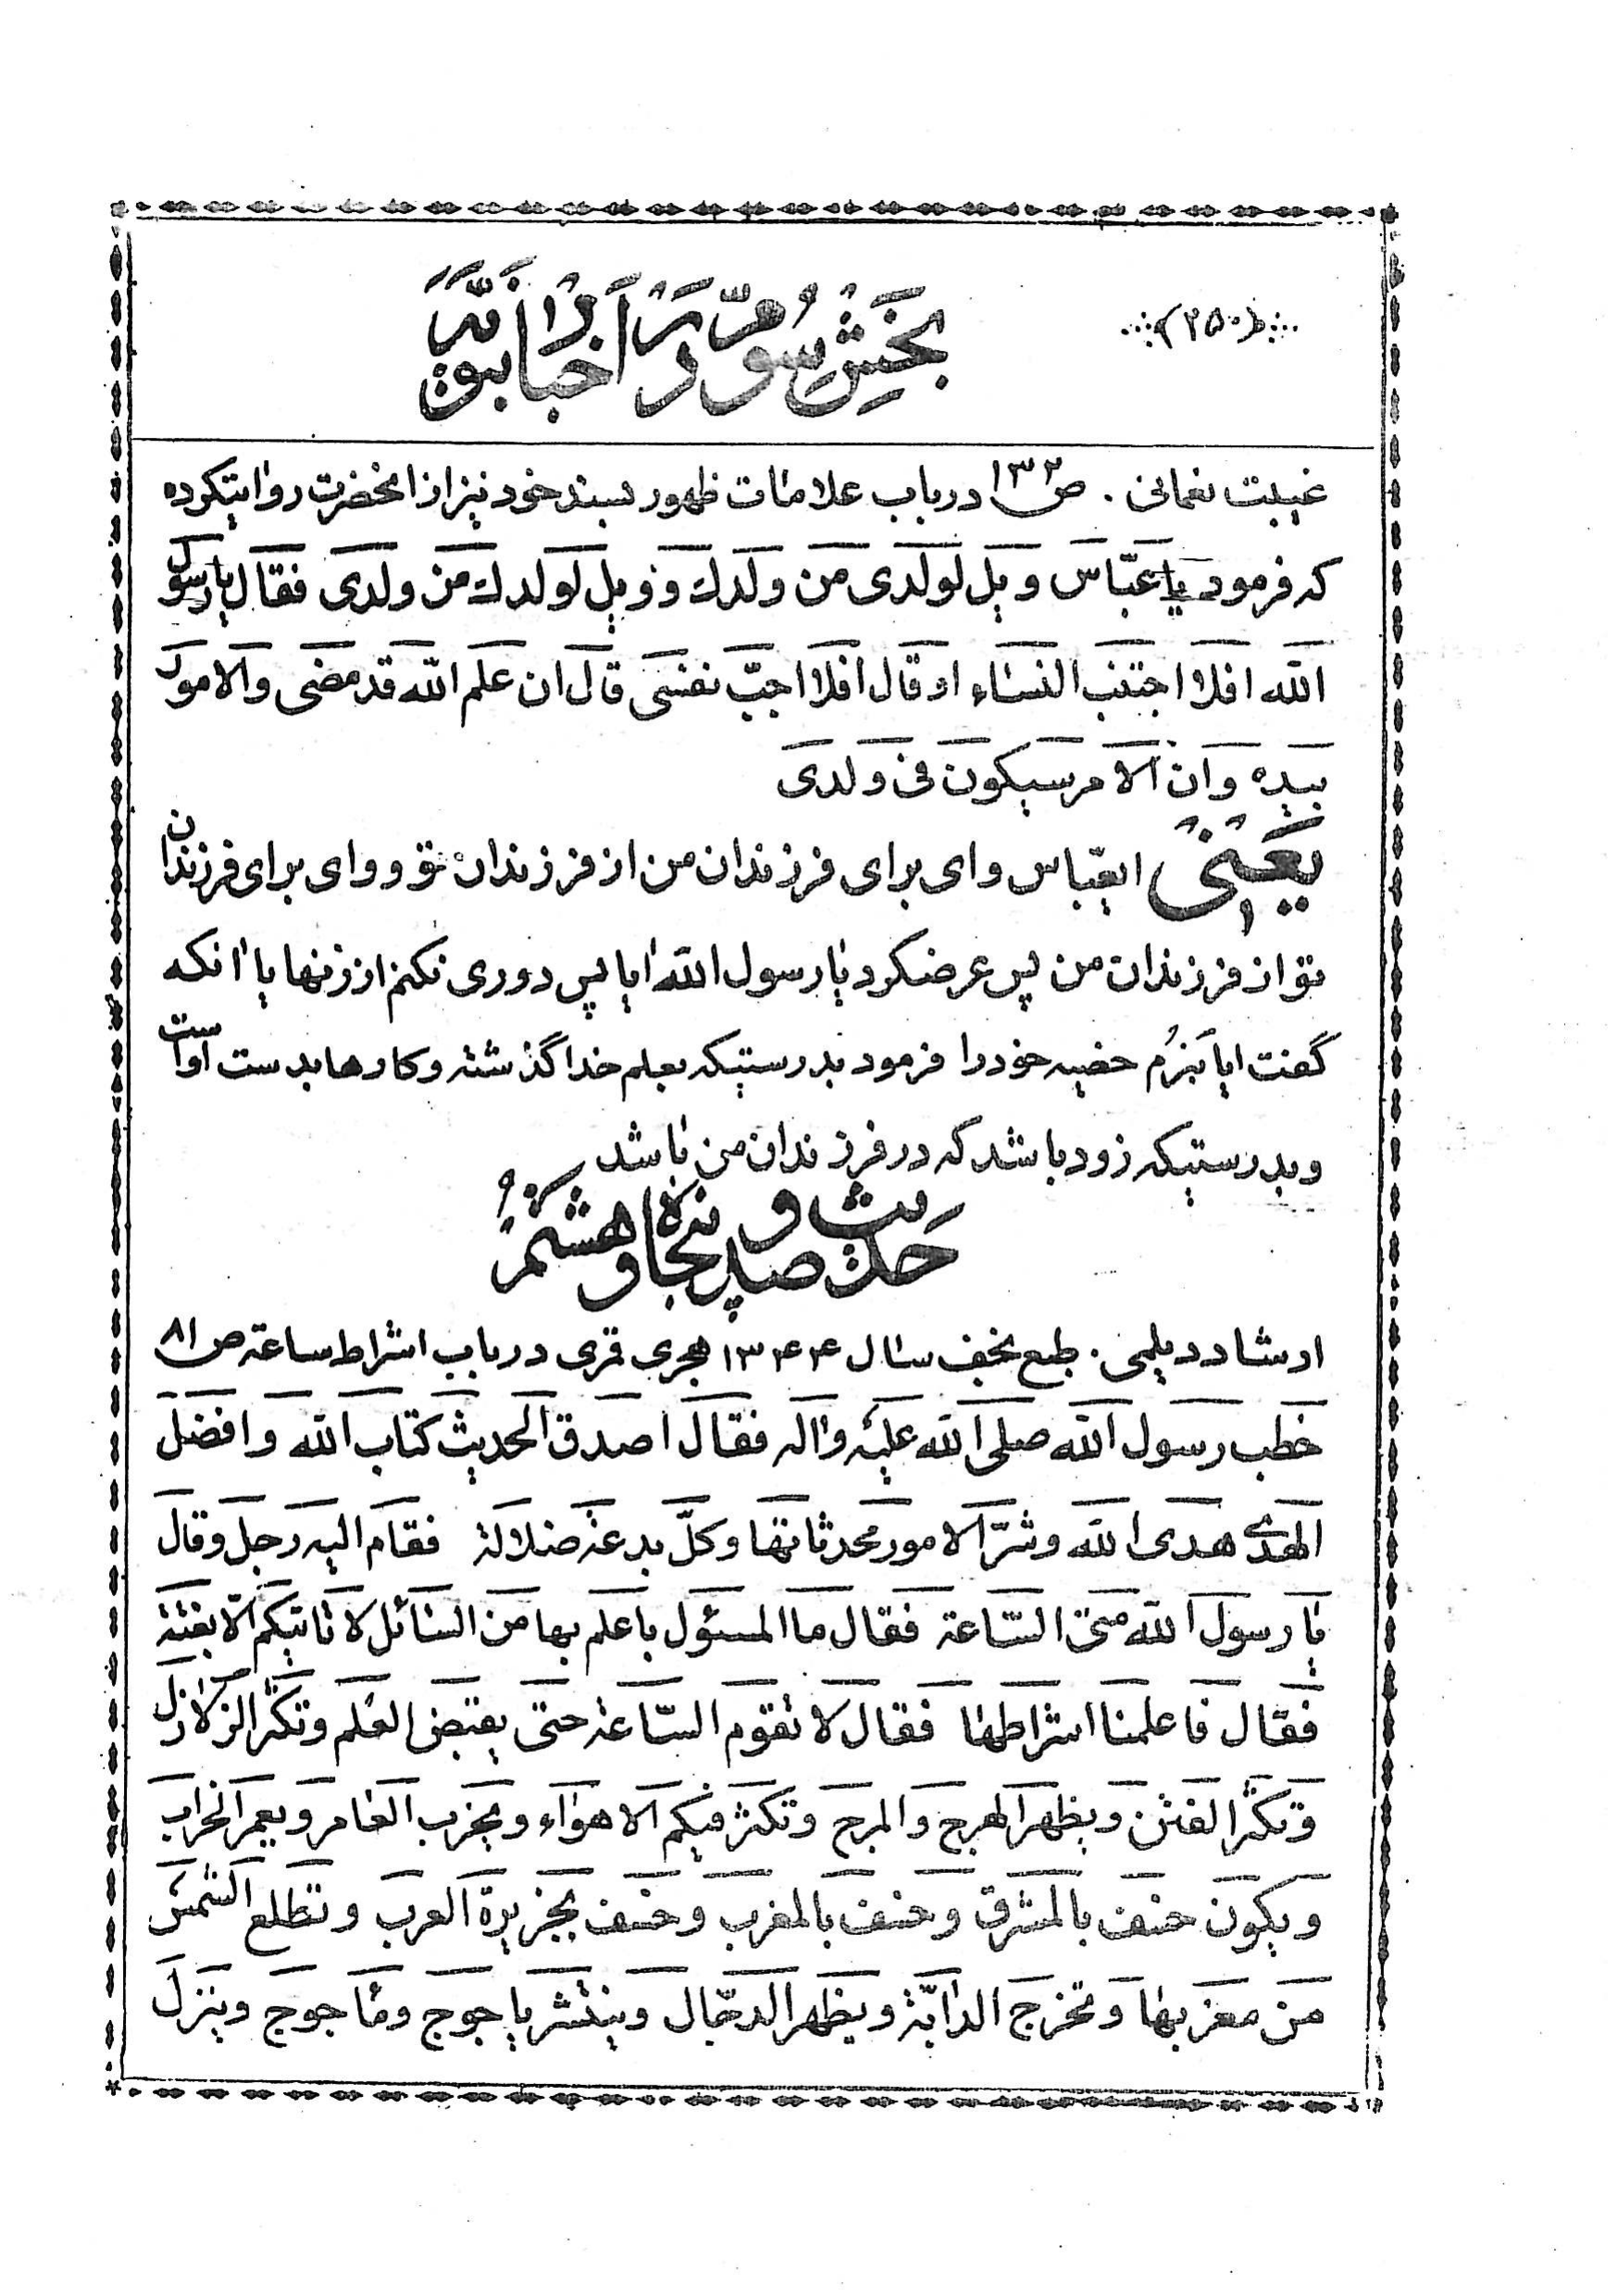 ﴿۲۵۰﴾
بخش سوم در اخبار نبویه
غیبت نعمانی . ص ۱۳۲ در باب علامات ظهور بسند خود نیز از انحضرت روایتکرده
که فرمود یا عبّاس ویل لولدی من ولدك و ویل لولدك من ولدی فقال یا رسول
الله افلا اجتنب النساء او قال افلا اجبّ نفسی قال ان علم الله قد مضی والامور
بیده وان الامر سیکون فی ولدی
یعنی ایعبّاس وای برای فرزندان من از فرزندان تو و وای برای فرزندان
تو از فرزندان من پس عرضکرد یا رسول الله ایا پس دوری نکنم از زنها یا انکه
گفت ایا نبرم خصیه خود را فرمود بدرستیکه بعلم خدا گذشته و کارها بدست اواست
و بدرستیکه زود باشد که در فرزندان من باشد
حدیث صد و پنجاه و هشتم
ارشاد دیلمی . طبع نجف سال ۱۳۴۴ هجری قمری در باب اشراط ساعة ص ۸۱
خطب رسول الله صلی الله علیه واله فقال اصدق الحدیث کتاب الله وافضل
الهدی هدی الله وشرّ الامور محدثاتها وکلّ بدعة ضلالة فقام الیه رجل وقال
یا رسول الله متی السّاعة فقال ما المسئول باعلم بها من السّائل لا تاتیکم الّا بغتة
فقال فاعلمنا اشراطها فقال لا تقوم السّاعة حتی یقبض العلم وتکثر الزلازل
وتکثر الفتن ویظهر الهرج والمرج وتکثر فیکم الاهواء ویخرب العامر ویعمر الخراب
ویکون خسف بالمشرق وخسف بالمغرب وخسف بجزیرة العرب وتطلع الشمس
من مغربها وتخرج الدابّة ویظهر الدجّال وینتشر یاجوج وماجوج وینزل